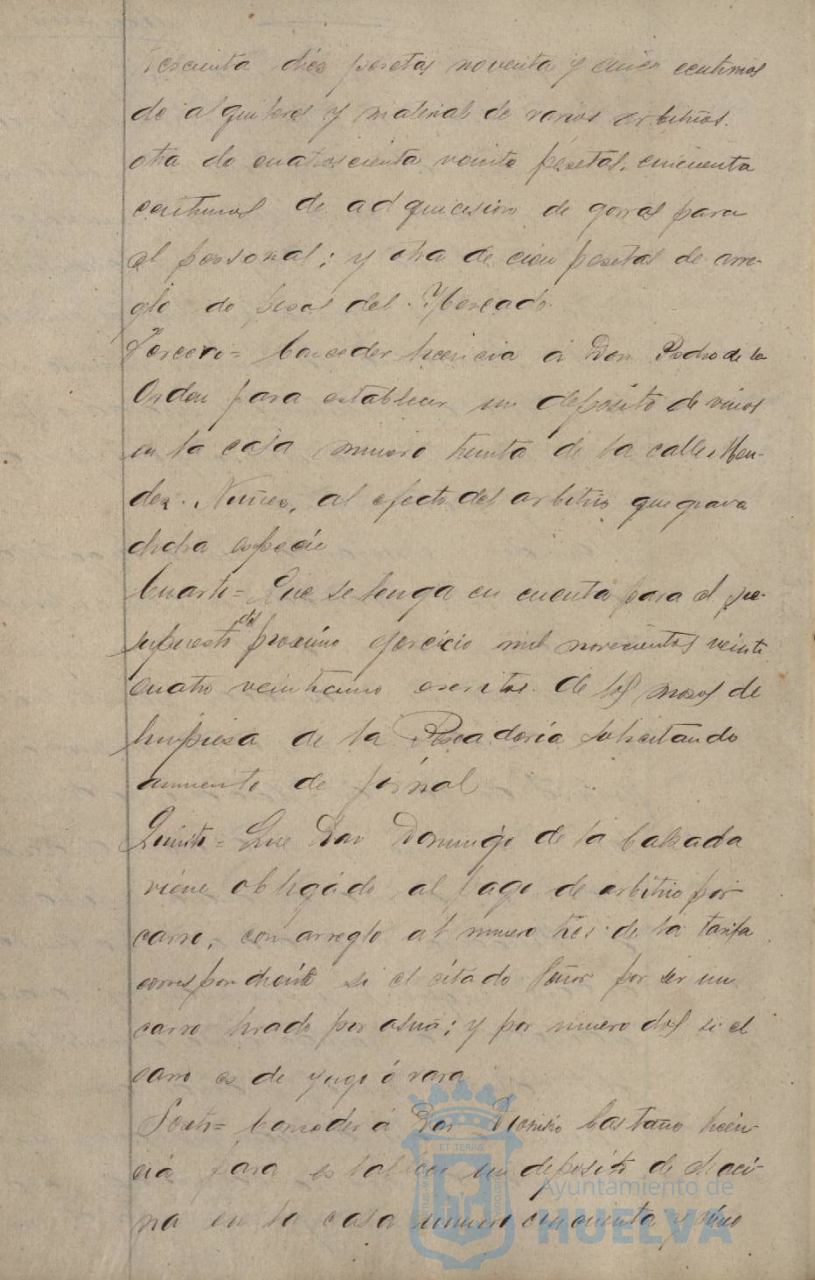 diez pesetas noventa y cinco centimos
de alquileres y material de varios arbitrios.
otra de cuatrocienta veinte pesetas, cincuenta
centimos de adquicision de gorras para
el personal; y otra de cien pesetas de arre-
glo de pesas del Mercado.
Tercero = Conceder licencia á Don Pedro de la
Orden para establecer un deposito de vinos
en la casa numero treinta de la calle Men-
dez Nuñez, al efecto del arbitrio que grava
dicha especie
Cuarto = Que se tenga en cuenta para el pre-
supuesto del proximo ejercicio mil novecientos veinti
cuatro veinticinco escritos de los mozos de
limpieza de la Pescaderia solicitando
aumento de jornal
Quinto = Que Don Domingo de la Calzada
viene obligado al pago de arbitrio por
carro, con arreglo al numero tres de la tarifa
correspondiente si el citado Señor por ser un
carro tirado por asnos; y por numero dos si el
carro es de yugo ó vara
Sexto = Conceder á Don Dionisio Castaño licen-
cia para establecer un deposito de chaci-
na en la casa numero cincuenta y cinco
ET TERRAE
Ayuntamiento de
HUELVA